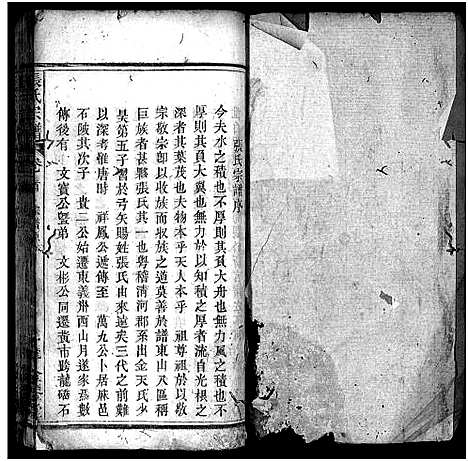 張氏宗譜序
今夫水之積也不厚則其負大舟也無力風之積也不
厚則其負大翼也無力於以知積之厚者流自光根之
深者其葉茂也夫物本乎天人本乎 祖尊祖於以敬
宗敬宗即以收族而收族之道莫善於譜東山區稱
巨族者甚夥張氏其一也粵稽清河郡系出金天氏少
昊第五子 於弓矢賜姓張氏由來遠矣三代之前難
以深考惟唐時 祥鳳公遞傳至 萬九公卜居麻邑
不陂其次子 貴二公始遷東義州西山月遂家焉數
傳後有 文寶公暨弟 文彬公同遷黃市 龍 石
張氏宗譜 卷首